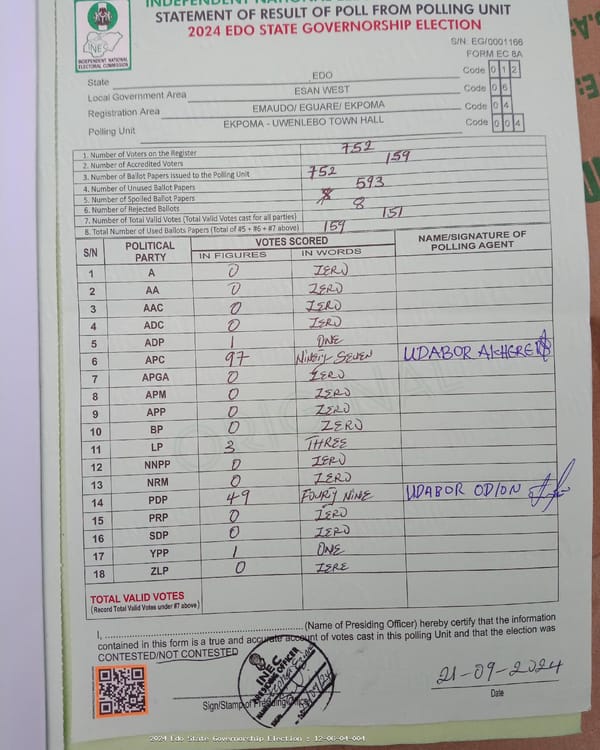 INDEPENDENT NATIONAL
STATEMENT OF RESULT OF POLL FROM POLLING UNIT
2024 EDO STATE GOVERNORSHIP ELECTION
INEC
INDEPENDENT NATIONAL
ELECTORAL COMMISSION
S/N: EG/0001166
FORM EC 8A
State EDO Code 0 1 2
Local Government Area ESAN WEST Code 0 6
Registration Area EMAUDO/ EGUARE/ EKPOMA Code 0 4
Polling Unit EKPOMA - UWENLEBO TOWN HALL Code 0 0 4
1. Number of Voters on the Register 752
2. Number of Accredited Voters 159
3. Number of Ballot Papers Issued to the Polling Unit 752
4. Number of Unused Ballot Papers 593
5. Number of Spoiled Ballot Papers
6. Number of Rejected Ballots 8
7. Number of Total Valid Votes (Total Valid Votes cast for all parties) 151
8. Total Number of Used Ballots Papers (Total of #5 + #6 + #7 above) 159
S/N POLITICAL PARTY VOTES SCORED NAME/SIGNATURE OF POLLING AGENT
IN FIGURES IN WORDS
1 A 0 ZERO
2 AA 0 ZERO
3 AAC 0 ZERO
4 ADC 0 ZERO
5 ADP 1 ONE
6 APC 97 NINETY SEVEN UDABOR AKHERE
7 APGA 0 ZERO
8 APM 0 ZERO
9 APP 0 ZERO
10 BP 0 ZERO
11 LP 3 THREE
12 NNPP 0 ZERO
13 NRM 0 ZERO
14 PDP 49 FOURTY NINE UDABOR ODION
15 PRP 0 ZERO
16 SDP 0 ZERO
17 YPP 1 ONE
18 ZLP 0 ZERE
ORIGINAL
TOTAL VALID VOTES
(Record Total Valid Votes under #7 above)
I, (Name of Presiding Officer) hereby certify that the information
contained in this form is a true and accurate account of votes cast in this polling Unit and that the election was
CONTESTED/NOT CONTESTED
INEC
PRESIDING OFFICER
21-09-2024
Sign/Stamp of Presiding Officer
Date
2024 Edo State Governorship Election : 12-06-04-004